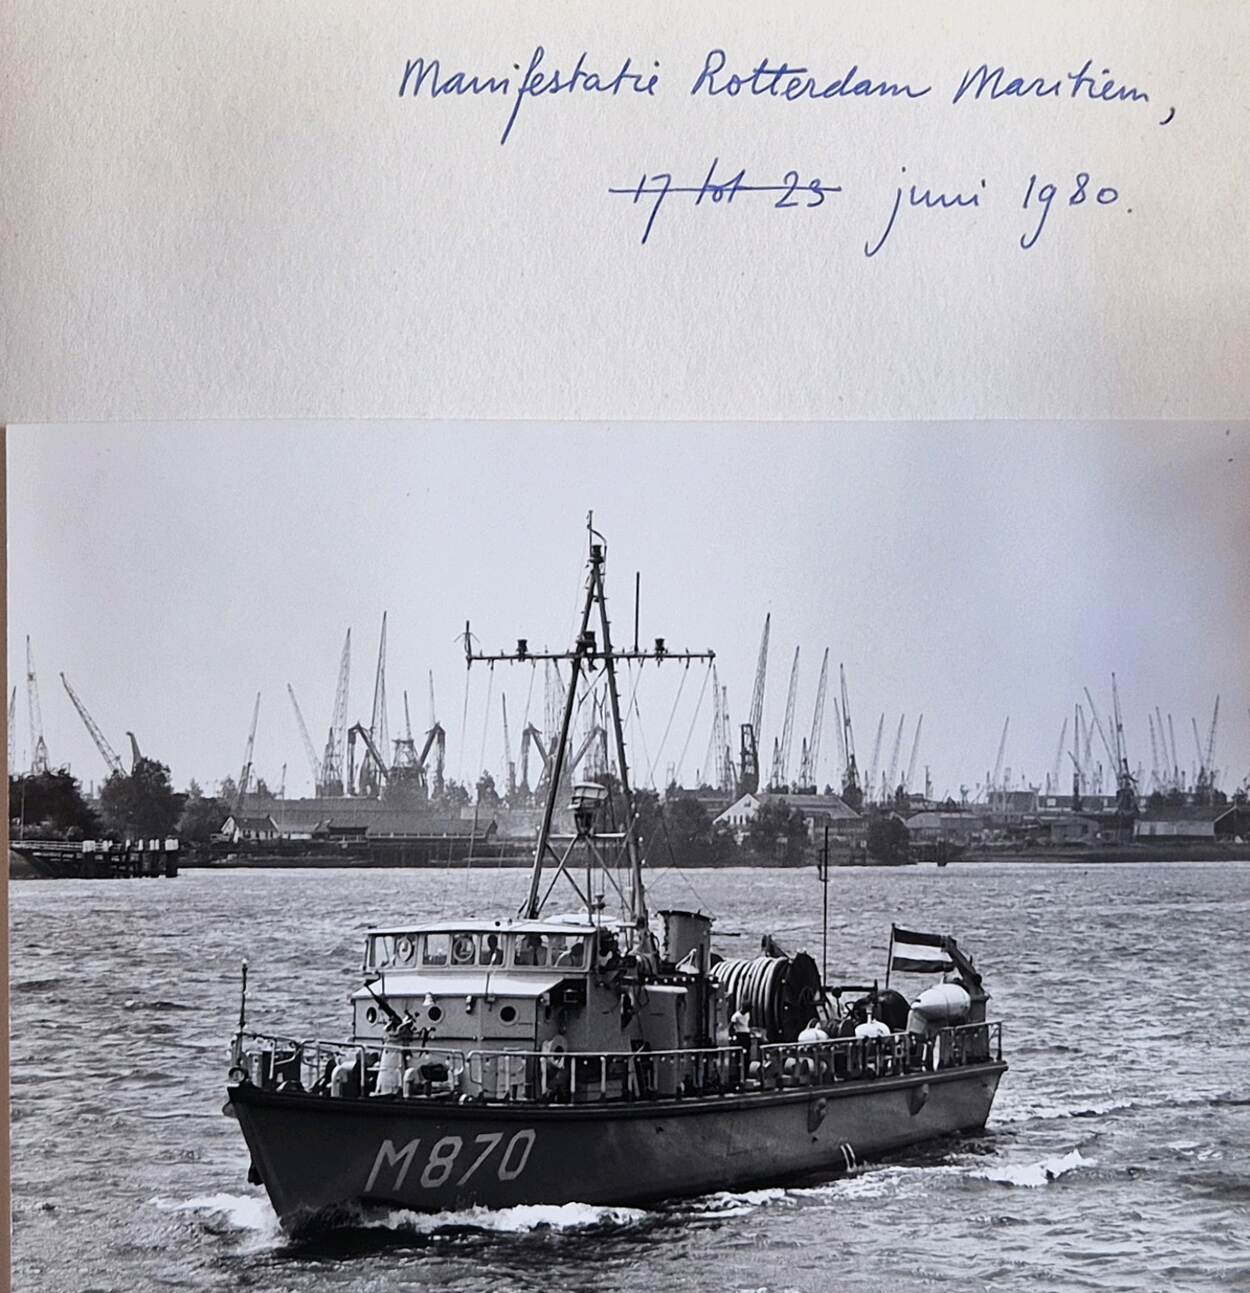 Manifestatie Rotterdam Maritiem,
17 tot 23 juni 1980.
M870